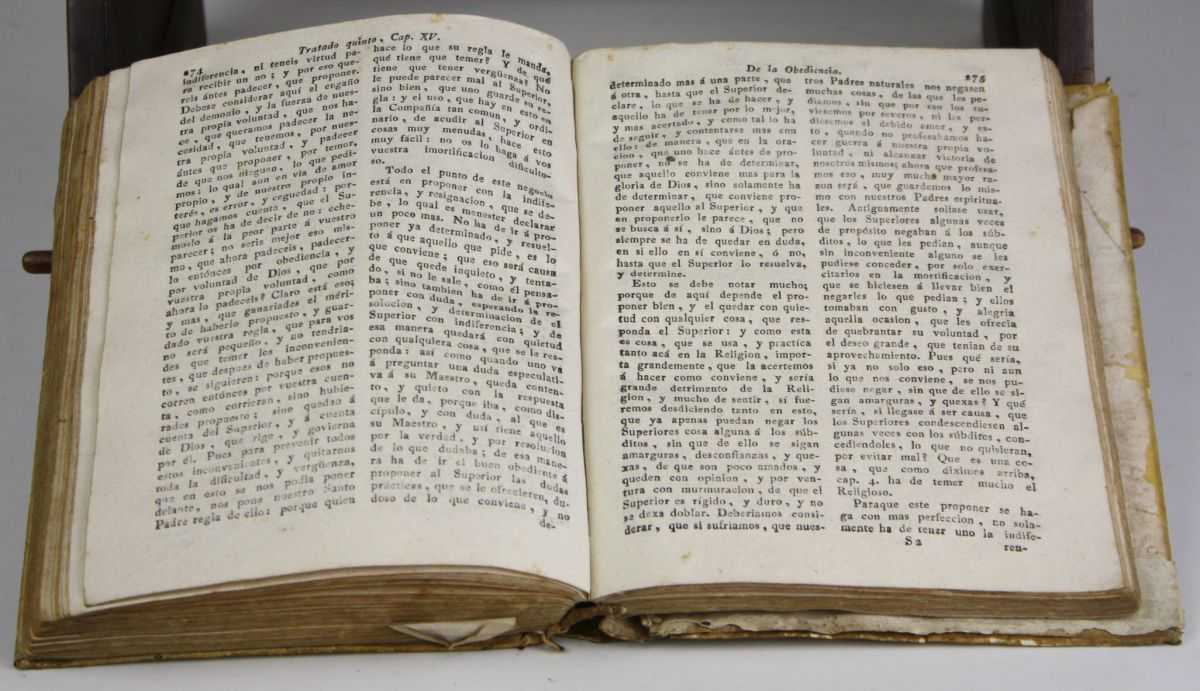 274
Tratado quinto, Cap. XV.
indiferencia, ni teneis virtud pa-
ra recibir un no; y por eso que-
reis ántes padecer, que proponer.
Debese considerar aquí el engaño
del demonio, y la fuerza de nues-
tra propia voluntad, que nos ha-
ce, que queramos padecer la ne-
cesidad, que tenemos, por nues-
tra propia voluntad, y padecer
ántes que proponer, por temor,
de que nos nieguen, lo que pedi-
mos: lo qual aun en via de amor
propio, y de nuestro propio in-
terés, es error, y ceguedad: por-
que hagamos cuenta, que el Su-
perior os ha de decir de no: eche-
moslo á la peor parte á vuestro
parecer; no sería mejor eso mis-
mo, que ahora padeceis, padecer-
lo entónces por obediencia, y
por voluntad de Dios, que por
vuestra propia voluntad, como
ahora lo padeceis? Claro está eso;
y mas, que ganariades el méri-
to de haberlo propuesto, y guar-
dado vuestra regla, que para vos
no será pequeño, y no tendria-
des que temer los inconvenien-
tes, que despues de haber propues-
to, se siguieren: porque esos no
corren entónces por vuestra cuen-
ta, como corrieran, sino hubie-
rades propuesto; sino quedas á
cuenta del Superior, y á cuenta
de Dios, que rige, y govierna
por él. Pues para prevenir todos
estos inconvenientes, y quitarnos
toda la dificultad, y vergüenza,
que en esto se nos podia poner
delante, nos pone nuestro Santo
Padre regla de ello: porque quien
hace lo que su regla le manda,
qué tiene que temer? Y de qué
tiene que tener vergüenza? No
le puede parecer mal al Superior,
sino bien, que uno guarde su re-
gla: y el uso, que hay en esto en
la Compañía tan comun, y ordi-
nario, de acudir al Superior en
cosas muy menudas, hace esto
muy fácil: no os lo haga á vos
vuestra inmortificacion dificulto-
so.
Todo el punto de este negocio
está en proponer con la indife-
rencia, y resignacion, que se de-
be, lo qual es menester declarar
un poco mas. No ha de ir á pro-
poner ya determinado, y resuel-
to á que aquello que pide, es lo
que conviene; que eso será causa
de que quede inquieto, y tenta-
do, si no le sale, como él pensa-
ba; sino tambien ha de ir á pro-
poner con duda, esperando la re-
solucion, y determinacion de el
Superior con indiferencia; y de
esa manera quedará con quietud
con qualquiera cosa, que se le res-
ponda: así como quando uno va
á preguntar una duda especulati-
va á su Maestro, queda conten-
to, y quieto con la respuesta
que le da, porque iba, como dis-
cípulo, y con duda, al que es
su Maestro, y así tiene aquello
por la verdad, y por resolucion
de lo que dudaba; de esa mane-
ra ha de ir el buen obediente á
proponer al Superior las dudas
prácticas, que se le ofrecieren, du-
doso de lo que conviene, y no
de-
De la Obediencia.
275
determinado mas á una parte, que
á otra, hasta que el Superior de-
clare, lo que se ha de hacer, y
aquello ha de tener por lo mejor,
y mas acertado, y como tal lo ha
de seguir, y contentarse mas con
ello: de manera, que en la ora-
cion, que uno hace ántes de pro-
poner, no se ha de determinar,
que aquello conviene mas para la
gloria de Dios, sino solamente ha
de determinar, que conviene pro-
poner aquello al Superior, y que
en proponerlo le parece, que no
se busca á sí, sino á Dios; pero
siempre se ha de quedar en duda,
en si ello en sí conviene, ó no,
hasta que el Superior lo resuelva,
y determine.
Esto se debe notar mucho;
porque de aquí depende el pro-
poner bien, y el quedar con quie-
tud con qualquier cosa, que res-
ponda el Superior: y como esta
es cosa, que se usa, y practíca
tanto acá en la Religion, impor-
ta grandemente, que la acertemos
á hacer como conviene, y sería
grande detrimento de la Reli-
gion, y mucho de sentir, si fue-
remos desdiciendo tanto en esto,
que ya apenas puedan negar los
Superiores cosa alguna á los súb-
ditos, sin que de ello se sigan
amarguras, desconfianzas, y que-
xas, de que son poco amados, y
queden con opinion, y por ven-
tura con murmuracion, de que el
Superior es rígido, y duro, y no
se dexa doblar. Deberiamos consi-
derar, que si sufriamos, que nues-
tros Padres naturales nos negasen
muchas cosas, de las que les pe-
diamos, sin que por eso los tu-
viesemos por severos, ni les per-
diesemos el debido amor, y es-
to, quando no profesabamos ha-
cer guerra á nuestra propia vo-
luntad, ni alcanzar victoria de
nosotros mismos; ahora que profesa-
mos eso, muy mucho mayor ra-
zon será, que guardemos lo mis-
mo con nuestros Padres espiritua-
les. Antiguamente soliase usar,
que los Superiores algunas veces
de propósito negaban á los súb-
ditos, lo que les pedian, aunque
sin inconveniente alguno se les
pudiese conceder, por solo exer-
citarlos en la mortificacion, y
que se hiciesen á llevar bien el
negarles lo que pedian; y ellos
tomaban con gusto, y alegria
aquella ocasion, que les ofrecia
de quebrantar su voluntad, por
el deseo grande, que tenian de su
aprovechamiento. Pues qué sería,
si ya no solo eso, pero ni aun
lo que nos conviene, se nos pu-
diese negar, sin que de ello se si-
gan amarguras, y quexas? Y qué
sería, si llegase á ser causa, que
los Superiores condescendiesen al-
gunas veces con los súbditos, con-
cediendoles, lo que no quisieran,
por evitar mal? Que es una co-
sa, que como diximos arriba,
cap. 4. ha de temer mucho el
Religioso.
Paraque este proponer se ha-
ga con mas perfeccion, no sola-
mente ha de tener uno la indife-
S 2
ren-